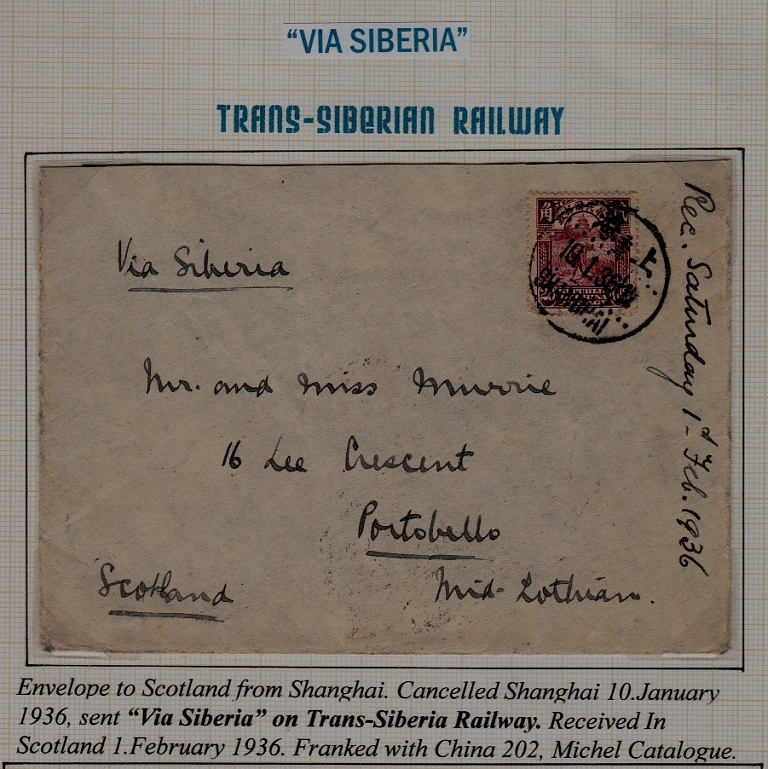 “VIA SIBERIA”
TRANS-SIBERIAN RAILWAY
Via Siberia
Mr. and Miss Murrie
16 Lee Crescent
Portobello
Scotland
Mid-Lothian.
Rec. Saturday 1st Feb. 1936
角
上
SHANGHAI
Envelope to Scotland from Shanghai. Cancelled Shanghai 10.January
1936, sent “Via Siberia” on Trans-Siberia Railway. Received In
Scotland 1.February 1936. Franked with China 202, Michel Catalogue.